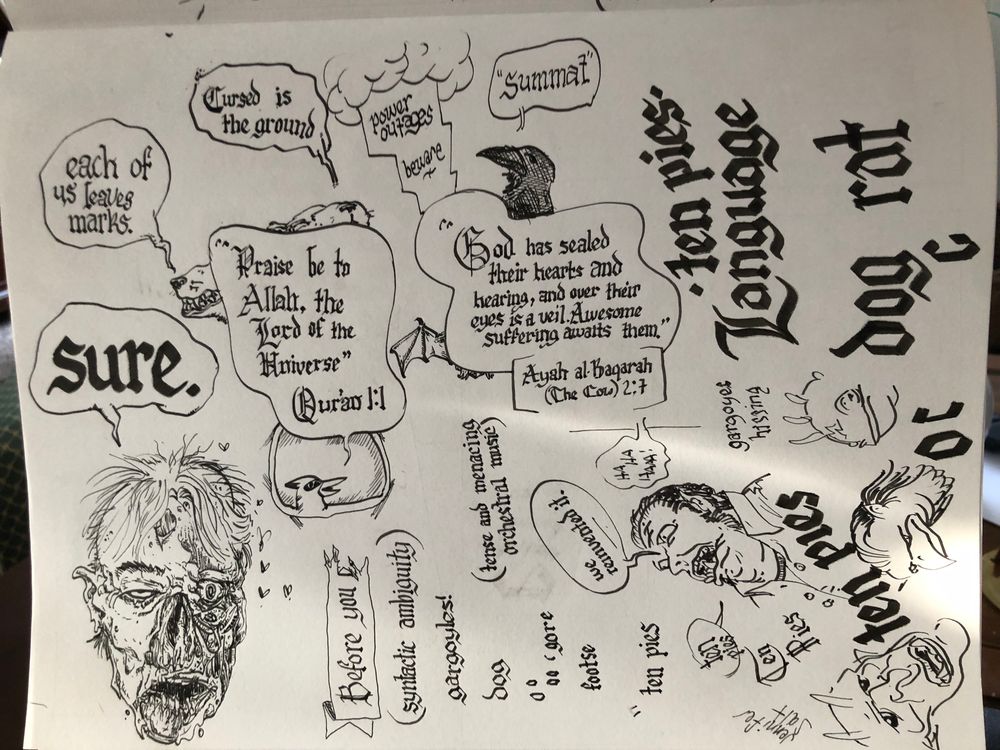 "Summat"
Cursed is
the ground
power
outages
beware
each of
us leaves
marks.
"Praise be to
Allah, the
Lord of the
Universe"
Qur'an 1:1
"God has sealed
their hearts and
hearing, and over their
eyes is a veil. Awesome
suffering awaits them."
Ayah al-Baqarah
(The Cow) 2:7
sure.
ten pies.
Language
rat
Dog
hissing
gargoyes
HA HA
HAA!
we
reinvented it.
(tense and menacing
orchestral music)
Before you
(syntactic ambiguity)
gargoyles!
dog
gore
footse
"ton pies
ten
pies
Ten
Pies
ten pies
or